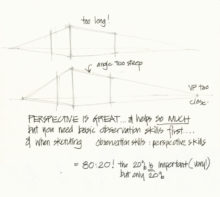 too long!
angle too steep
VP too
close
PERSPECTIVE IS GREAT... & helps SO MUCH
but you need basic observation skills first...
& when sketching observation skills : perspective skills
= 80:20! the 20% is important (very)
but only 20%